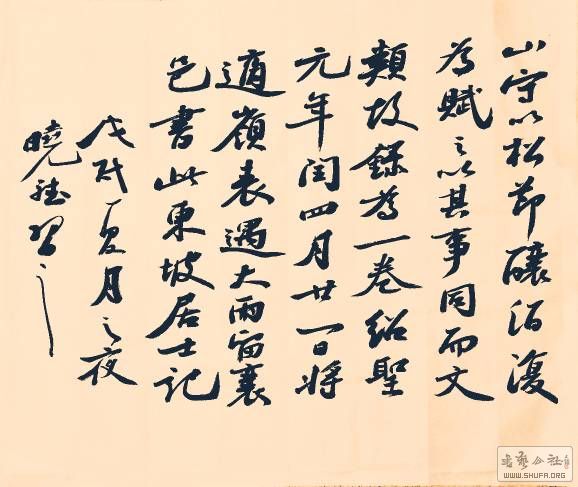 山守以松節釀酒復
為賦之以其事同而文
類故錄為一卷紹聖
元年閏四月廿一日將
適嶺表遇大雨留襄
邑書此東坡居士記
戊戌夏月之夜
曉習之
书艺公社
WWW.SHUFA.ORG